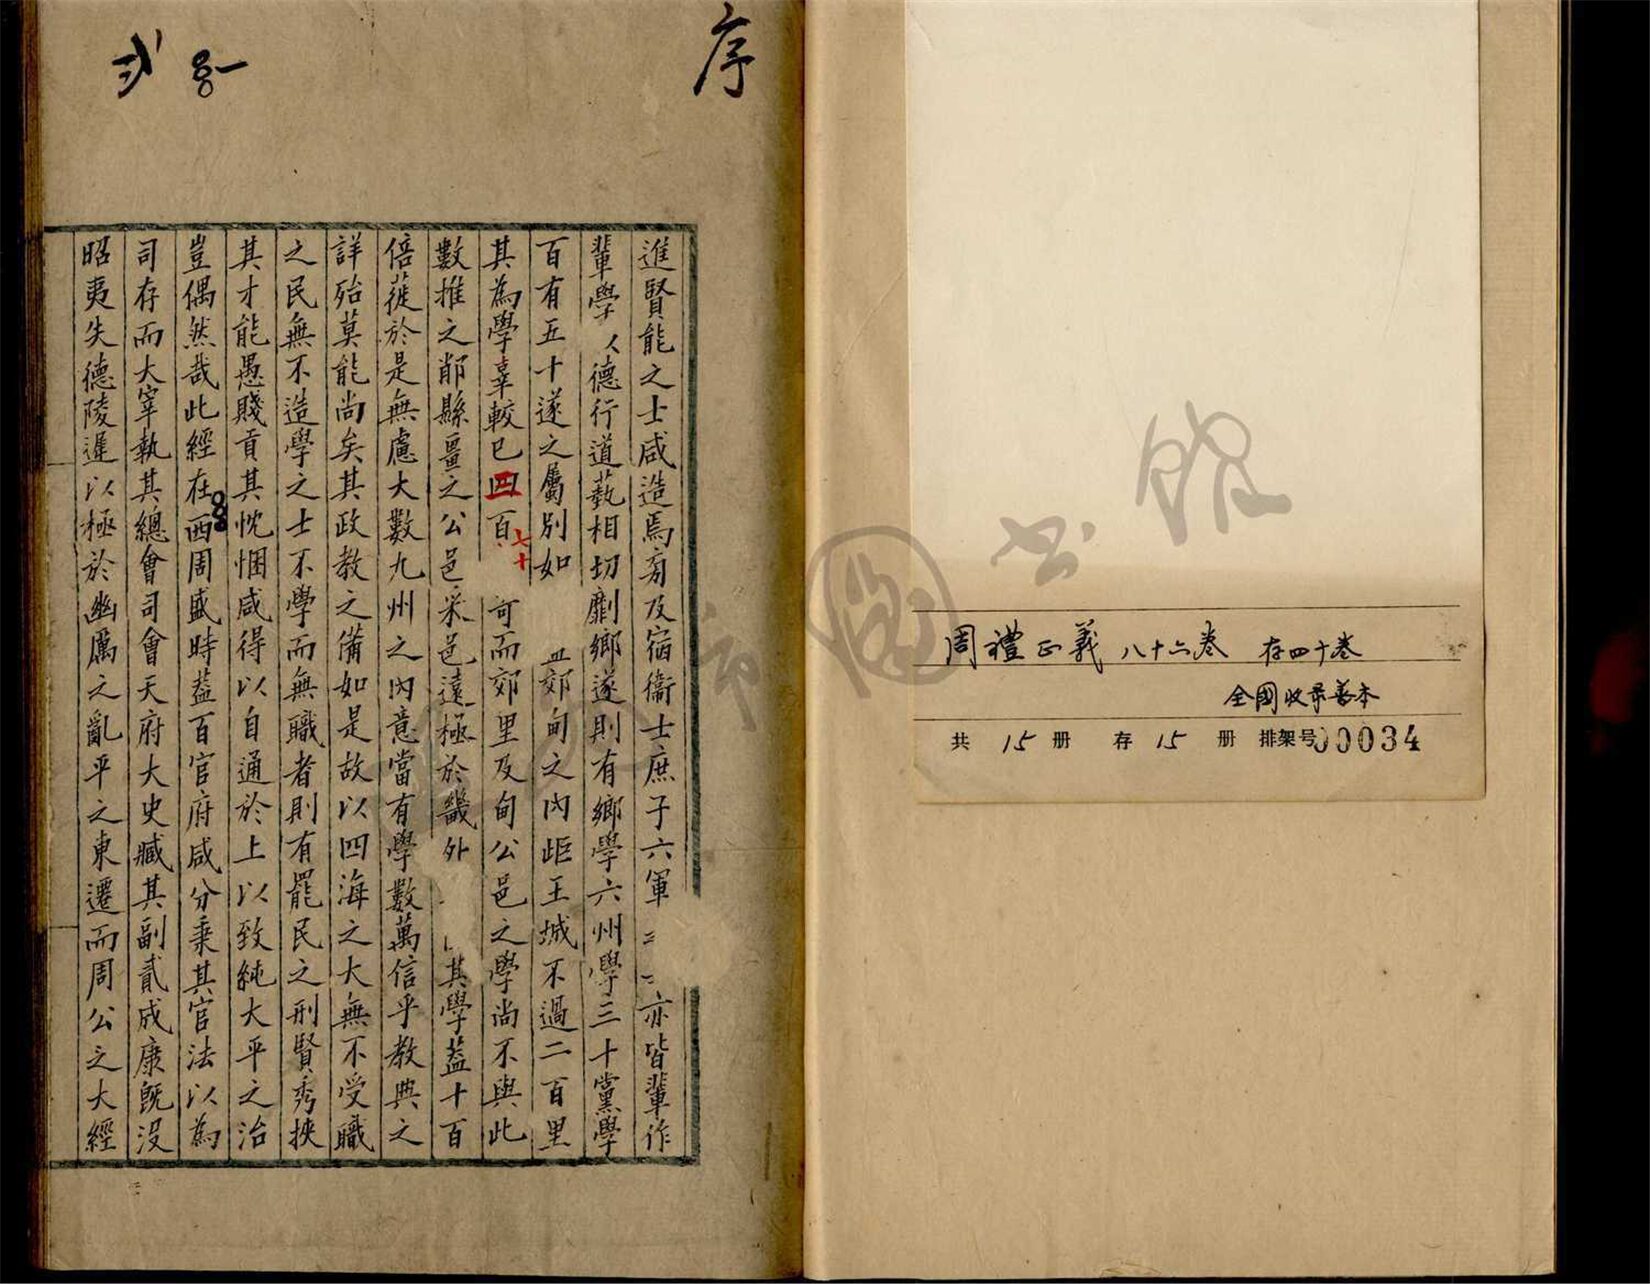 周禮正義 八十六卷 存四十卷
全國收录善本
共 15 册 存 15 册 排架号00034
序
進賢能之士咸造焉旁及宿衞士庶子六軍亦皆輩作
輩學德行道藝相切劘鄉遂則有鄉學六州學三十黨學
百有五十遂之屬別如郊甸之內歫王城不過二百里
其為學辜較已四百七十可而郊里及甸公邑之學尚不與此
數推之䣊縣畺之公邑采邑遠極於畿外其學蓋十百
倍蓰於是無慮大數九州之內意當有學數萬信乎教典之
詳殆莫能尚矣其政教之備如是故以四海之大無不受職
之民無不造學之士不學而無職者則有罷民之刑賢秀挾
其才能愚賤貢其忱悃咸得以自通於上以致純大平之治
豈偶然哉此經在西周盛時蓋百官府咸分秉其官法以為
司存而大宰執其總會司會天府大史臧其副貳成康既沒
昭夷失德陵遲以極於幽厲之亂平之東遷而周公之大經